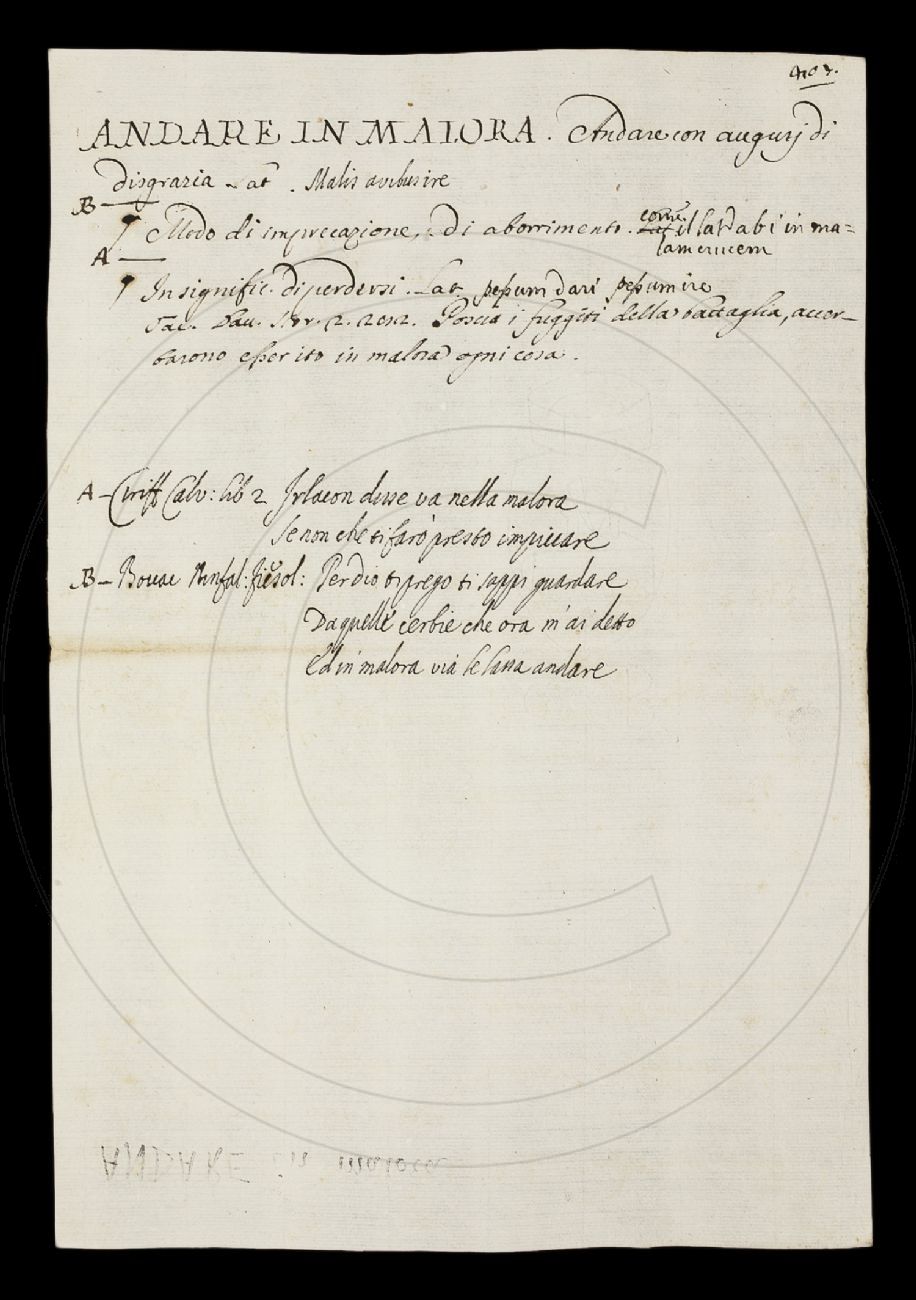 ANDARE IN MALORA. Andare con augurj di
disgrazia Lat. Malis avibus ire
B
¶ Modo di imprecazione, di aborrimento. come il lat abi in ma=
lam crucem
A
¶ In signific. di perdersi. Lat pessum dari pessum ire
Tac. Dav. Stor. 2. Poscia i fuggiti della battaglia, accer-
tarono esser ito in malora ogni cosa.
A – Ciriff Calv: lib 2 Irlacon disse va nella malora
Se non che ti farò presto impiccare
B – Bocac Ninfal: fiesol: Per dio ti prego ti sappi guardare
Da quelle cerbie che ora m'ai detto
Ed in malora via le lassa andare
ANDARE in malora